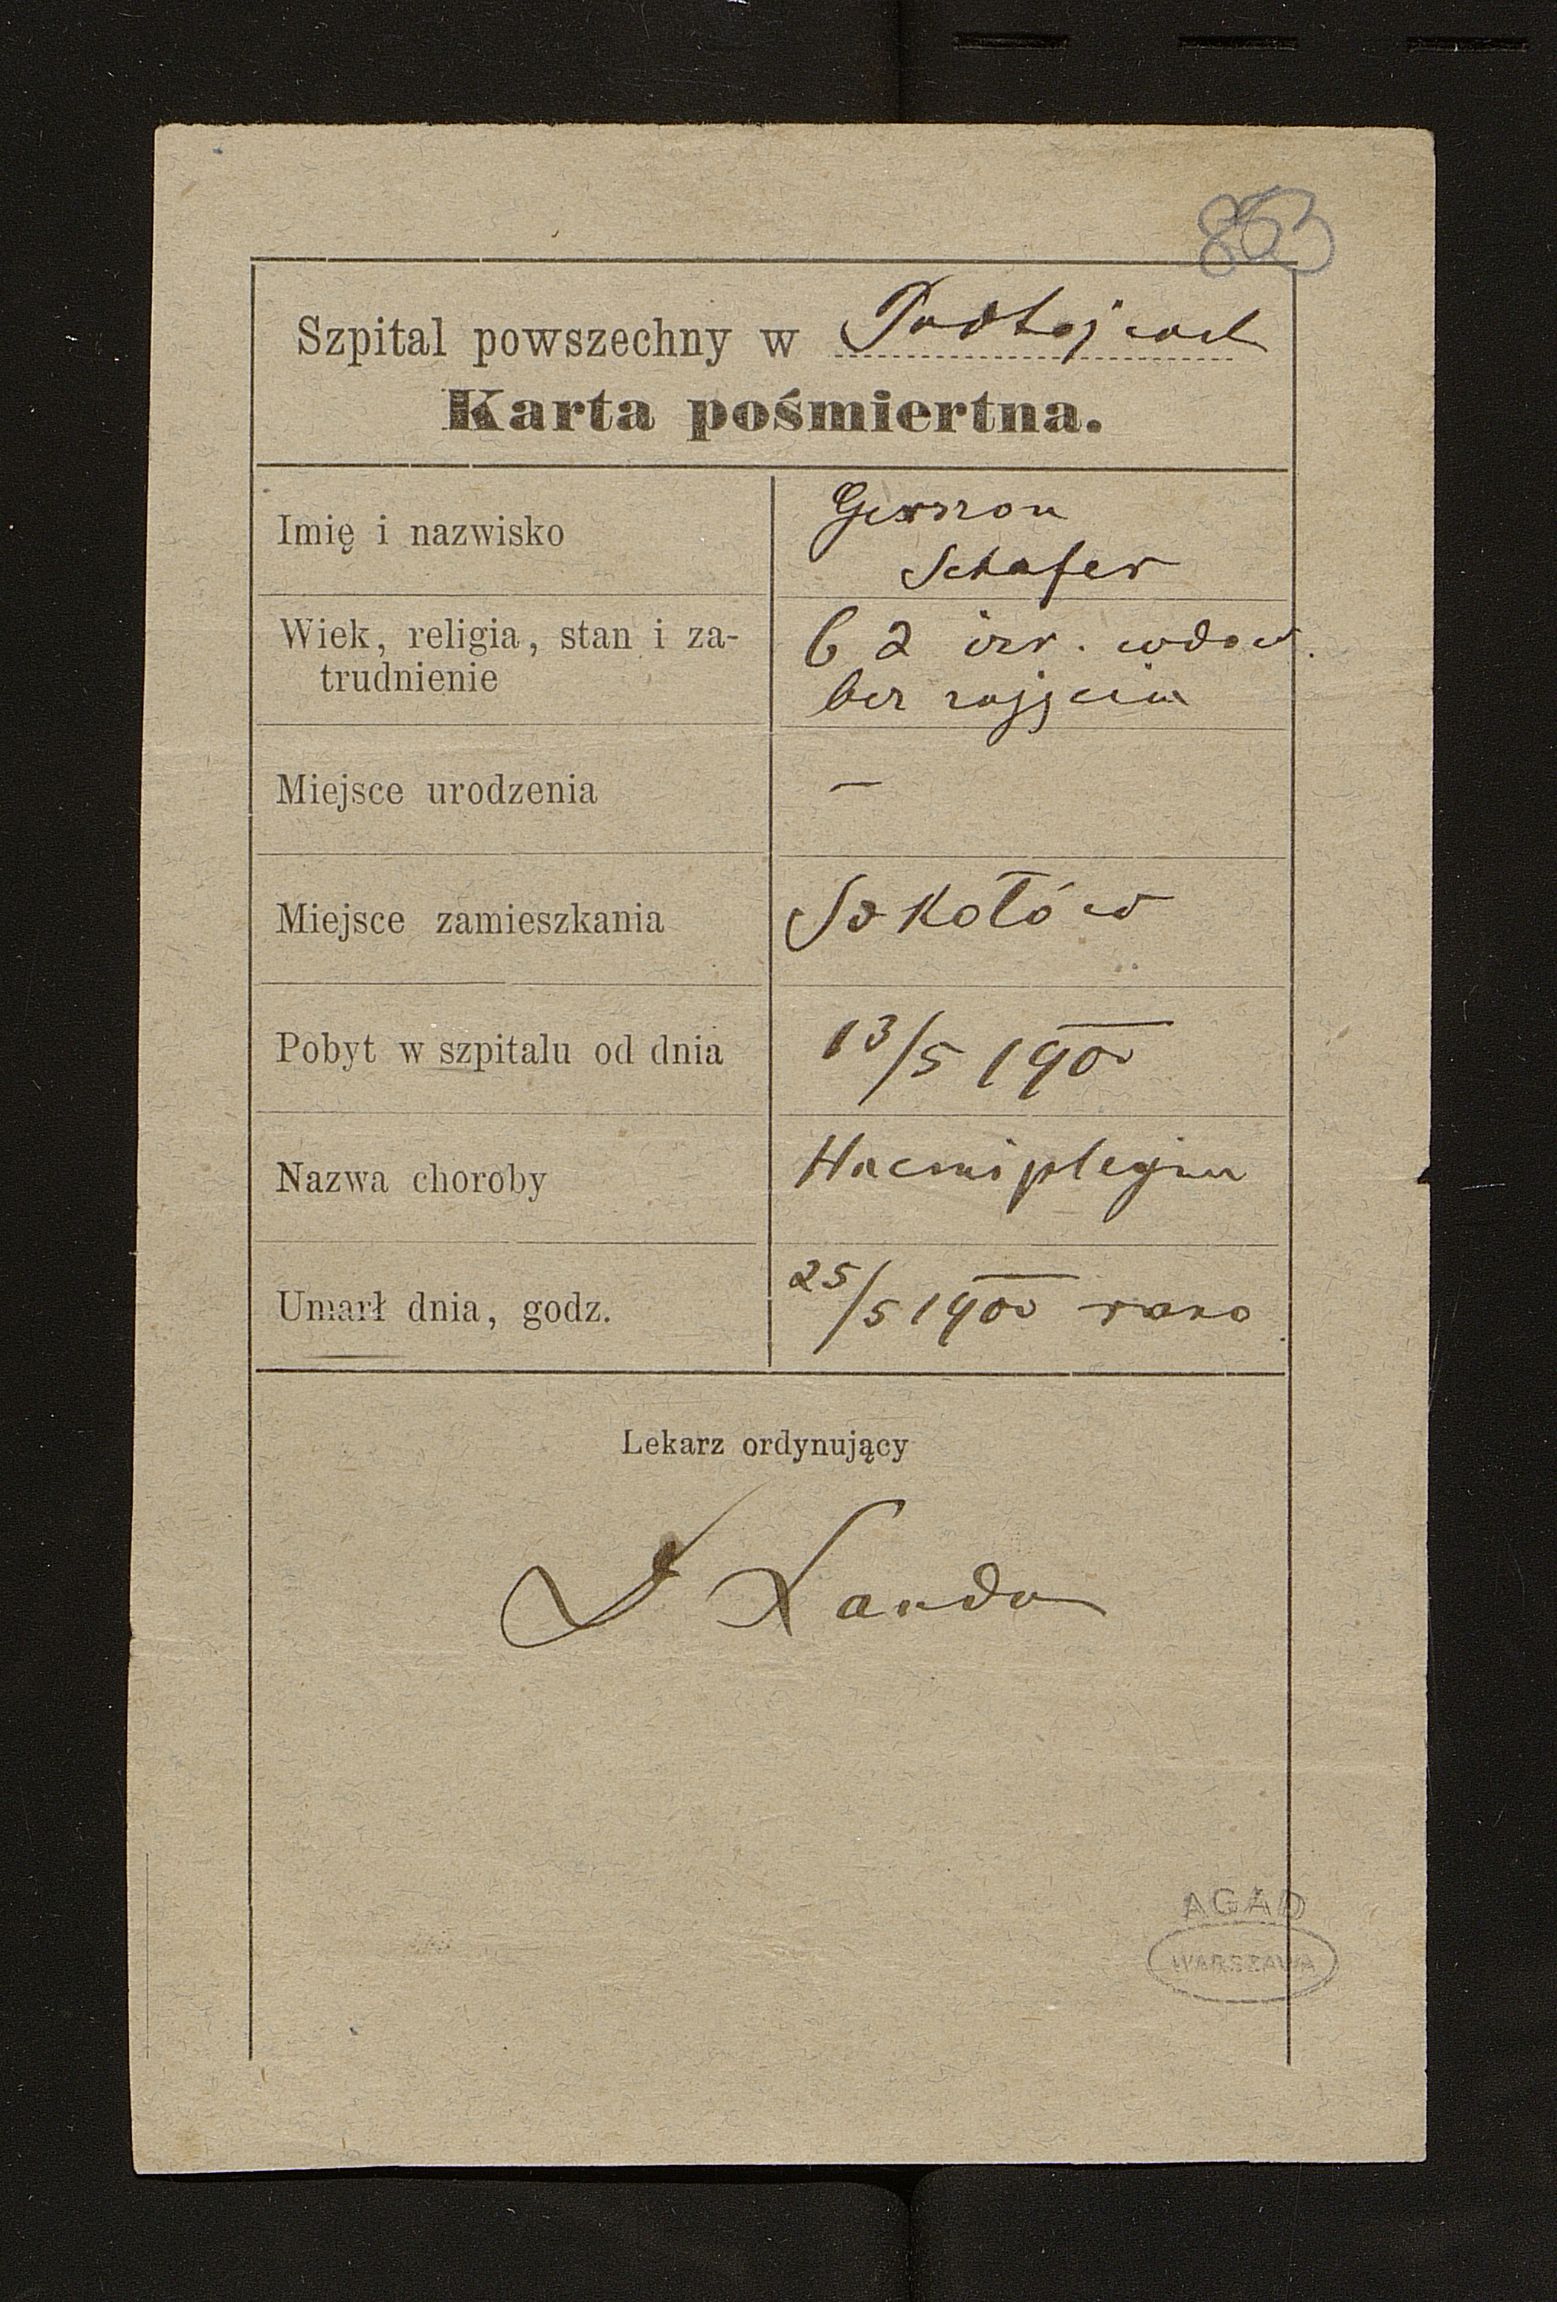 853
Szpital powszechny w Podhajcach
Karta pośmiertna.
Imię i nazwisko
Gerszon
Schafer
Wiek, religia, stan i za-
trudnienie
62 izr. wdow.
bez zajęcia
Miejsce urodzenia
—
Miejsce zamieszkania
Sokołów
Pobyt w szpitalu od dnia
13/5 1900
Nazwa choroby
Haemiplegia
Umarł dnia, godz.
25/5 1900 rano
Lekarz ordynujący
Landau
AGAD
WARSZAWA